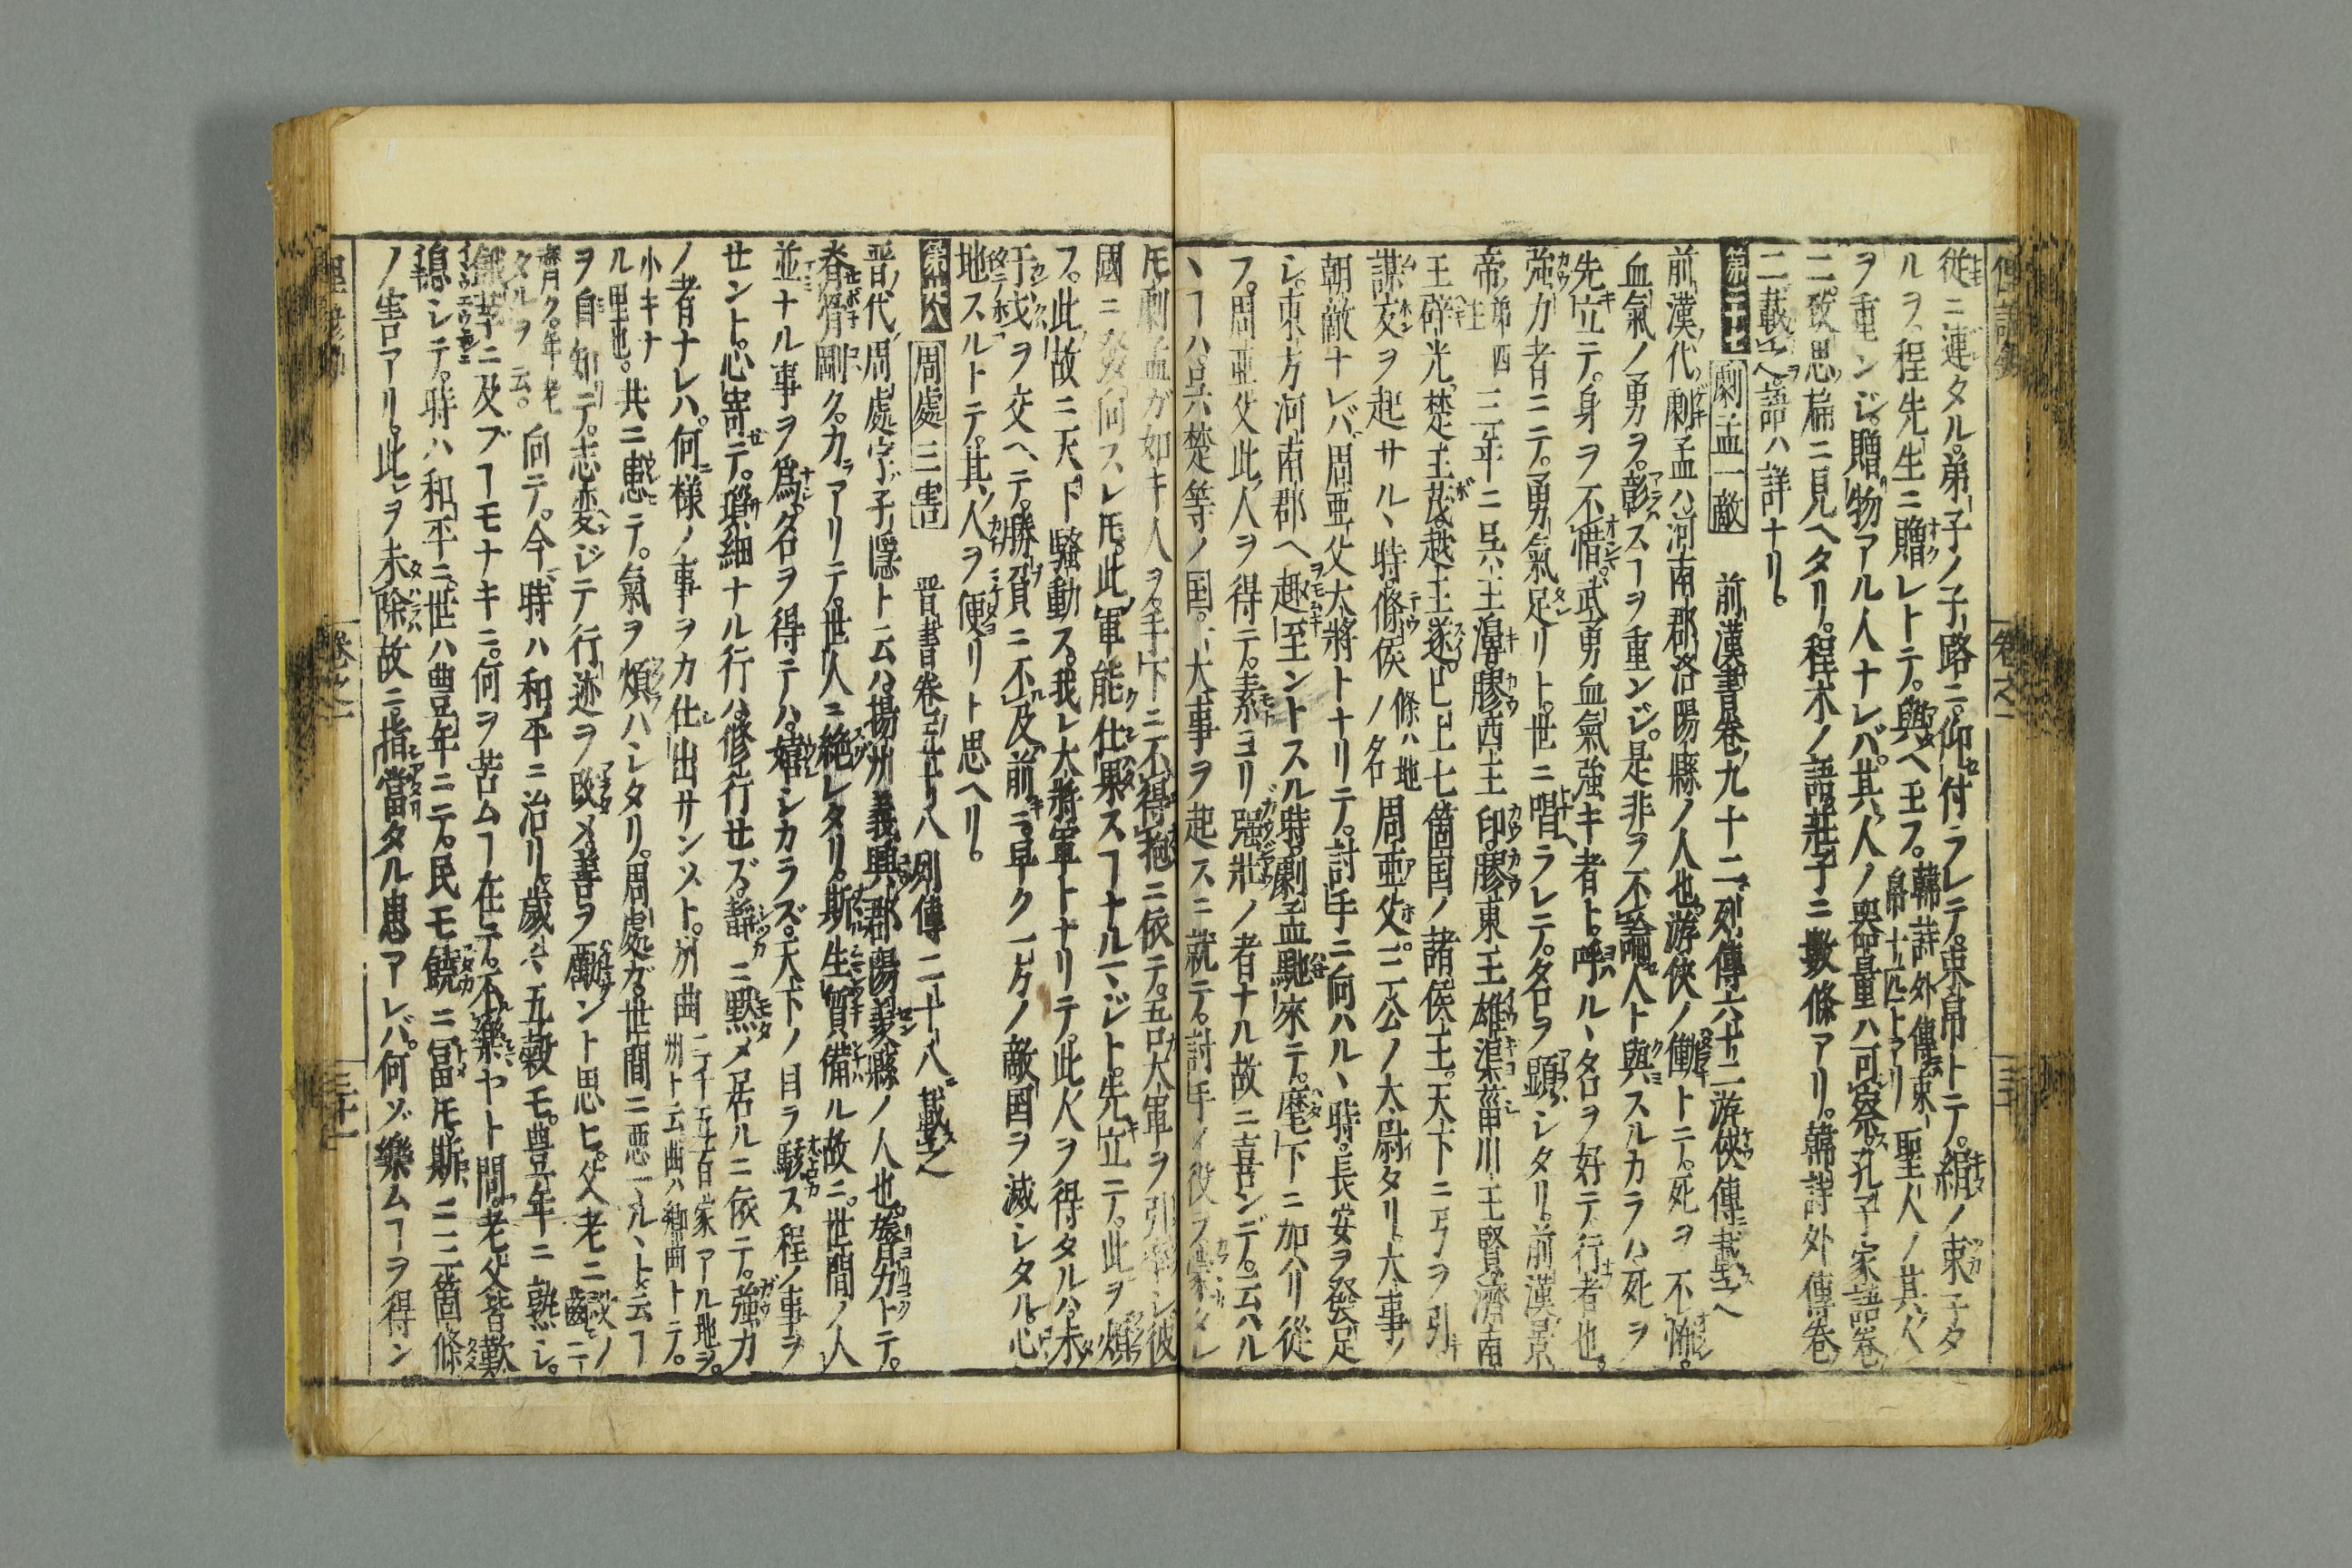 従ニ連タル。弟子ノ子路ニ。仰付ラレテ。束帛トテ。絹ノ束子タ
ルヲ。程先生ニ贈レトテ。與ヘ玉フ。韓詩外傳 帛十匹トアリ 聖人ノ其人
ヲ重ンジ。贈物アル人ナレバ。其人ノ器量ハ可察。孔子家語巻
二。致思篇ニ見ヘタリ。程木ノ語。莊子ニ數條アリ。韓詩外傳巻
二載之。語ハ詳ナリ。
第二十七 劇孟一敵 前漢書巻九十二。列傳六十二游俠傳載之
前漢ノ代。劇孟ハ河南郡洛陽縣ノ人也。游俠ノ働トテ。死ヲ不怖。
血氣ノ勇ヲ。彰スヿヲ重ンジ。是非ヲ不論。人ト與スルカラハ死ヲ
先立テ。身ヲ不惜。武勇血氣強キ者ト。呼ルヽ名ヲ好テ行者也。
強力者ニテ。勇氣足リト。世ニ唱ラレテ。名ヲ顕シタリ。前漢景
帝 第四主 三年ニ呉王濞膠西王卬膠東王雄渠菑川王賢濟南
王辟光楚王茂越王遂。已上七箇国ノ諸侯王。天下ニ弓ヲ引
謀叛ヲ起サルヽ時。條侯 條ハ地ノ名 周亜父。三公ノ大尉タリ。大事ノ
朝敵ナレバ。周亜父大將トナリテ。討手ニ向ハルヽ時。長安ヲ發足
シ。東方河南郡ヘ趣至ントスル時。劇孟馳來テ。麾下ニ加ハリ從
フ。周亜父此人ヲ得テ。素ヨリ強壯ノ者ナル故ニ喜ンデ。云ハル
ヽヿハ呉楚等ノ国。大事ヲ起スニ就テ。討手ノ役ヲ蒙タレ
𪜈劇孟ガ如キ人ヲ。手下ニ不得抱ニ依テ。吾大軍ヲ引率シ彼
國ニ發向スレ𪜈。此軍能仕果スヿナルマジト。先立テ。此ヲ煩
フ。此故ニ天下騒動ス。我レ大將軍トナリテ。此人ヲ得タルハ。未
于戈ヲ交ヘテ。勝負ニ不及前ニ。早ク一方ノ敵国ヲ滅シタル心
地スルトテ。其人ヲ便リト思ヘリ。
第二十八 周處三害 晋書巻五十八列傳二十八載之
晋ノ代周處字子隱ト云ハ。揚州義興郡陽羨縣ノ人也。膂力トテ。
脊骨剛ク。力アリテ。世人ニ絶レタリ。斯生質備ル故ニ。世間ノ人
並ナル事ヲ爲。名ヲ得テハ。嬉シカラズ。天下ノ目ヲ駭ス程ノ事ヲ
セント。心寄テ。瑣細ナル行ハ。修行セズ。靜ニ默メ居ルニ依テ。強力
ノ者ナレハ。何様ノ事ヲカ仕出サンソト。州曲 二千五百家アル地ヲ。州ト云曲ハ郷曲トテ。
小キナル里也。 共ニ患テ。氣ヲ煩ハシタリ。周處ガ。世間ニ悪マルヽト云ヿ
ヲ自知テ。志変ジテ行迹ヲ改メ。善ヲ勵ント思ヒ。父老ニ 齒ノ齊ク。年老タルヲ云。
向テ。今時ハ和平ニ治リ歳ハ五穀モ。豊年ニ熟シ。
飢苦ニ及ブヿモナキニ。何ヲ苦ムヿ在ヒテ。不樂ヤト問。老父皆歎
息シテ。時ハ和平ニ世ハ豊年ニテ。民モ饒ニ冨𪜈。斯ニ三箇條
ノ害アリ。此ヲ未除故ニ。指當タル患アレバ。何ゾ樂ムヿヲ得ン
巻之一
巻之一
三十
三十一